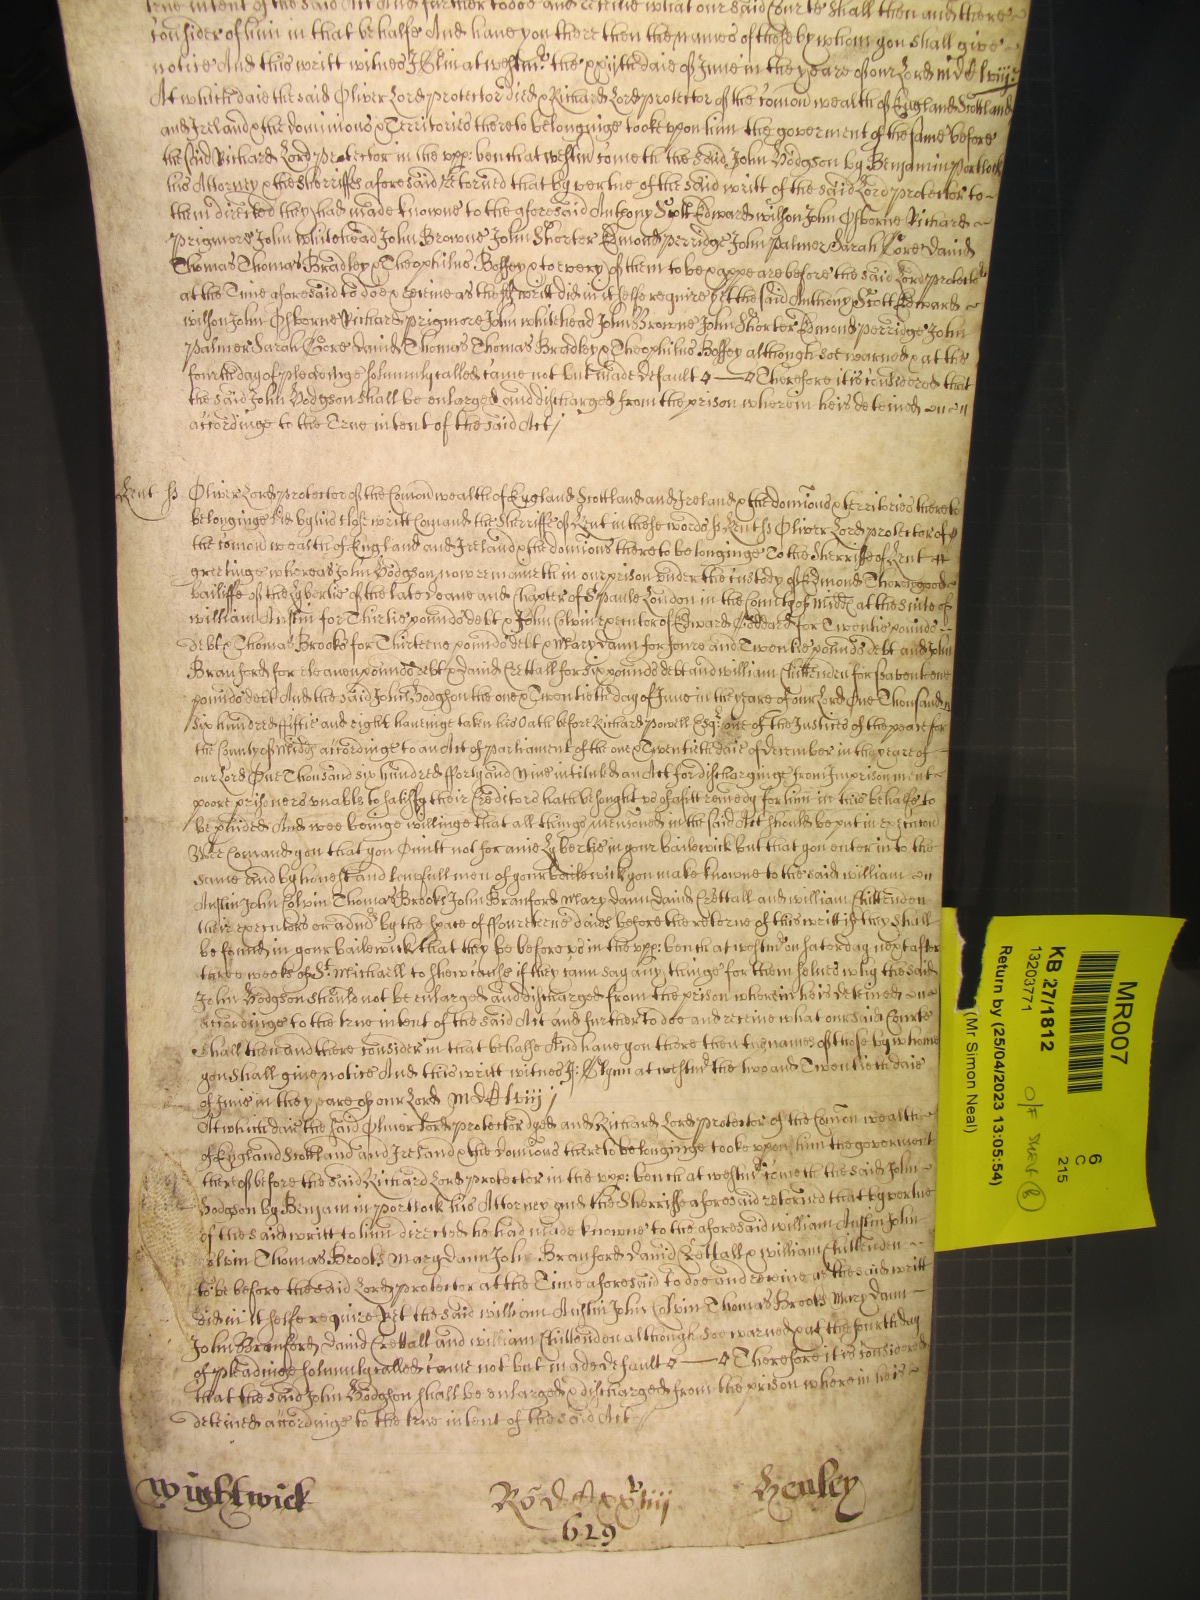 true intent of the said Act And further to doe and receive what our said Courte shall then and there
consider of him in that behalfe And have you there then the names of those by whom you shall give
notice And this writt witnes J Glin at westmr the xxijth daie of June in the yeare of our Lord MDClviij
At which daie the said Oliver Lord protector died & Richard Lord protector of the Comon wealth of England Scottland
and Ireland & the dominions & Territories thereto belonginge tooke upon him the goverment of the same before
the said Richard Lord Protector in the upp: bench at westmr cometh the said John Hodgson by Benjamin Portlock
his Attorney & the Sherriffes aforesaid retorned that by vertue of the said writt of the said Lord protector to
them directed they had made knowne to the aforesaid Anthony Scott Edward wilson John Osborne Richard
Prigmore John whitehead John Browne John Shorter Edmond Perridge John Palmer Sarah Gore David
Thomas Thomas Bradley & Theophilus Boffey & to every of them to be & appeare before the said Lord protector
at the Time aforesaid to doe & receive as the said writt did in it selfe require yet the said Anthony Scott Edward
wilson John Osborne Richard Prigmore John whitehead John Browne John Shorter Edmond Perridge John
Palmer Sarah Gore David Thomas Thomas Bradley & Theophilus Boffey although soe warned & at the
fourth day of pleadinge solemnly called came not but made default Therefore it is considered that
the said John Hodgson shall be enlarged and discharged from the prison wherein he is deteined
accordinge to the True intent of the said Act
Kent ss Oliver Lord protector of the Comon wealth of England Scottland and Ireland & the dominions & territories thereto
belonginge did by his close writt Comand the Sherriffe of Kent in these words ss Kent ss Oliver Lord protector of
the Comon wealth of England and Ireland & the dominions thereto belonginge To the Sherriffe of Kent
greetinge whereas John Hodgson now remaineth in our prison under the custody of Edmond Thorogood
bailiffe of the Libertie of the late Deane and Chapter of St Paule London in the County of Midd at the suite of
william Austin for Thirtie pounds debt & John Colvin executor of Edward Goddard for Twentie pounds
debt & Thomas Brooks for Thirteene pounds debt & Mary Dann for foure and Twentie pounds debt and John
Branford for eleaven pounds debt & David Crettall for six pounds debt and william Chittenden for seventeene
pounds debt And the said John Hodgson the one & Twentieth day of June in the yeare of our Lord One Thousand
six hundred fiftie and eight haveinge taken his Oath before Richard Powell Esqr one of the Justices of the peace for
the County of Midd accordinge to an Act of Parliament of the one & Twentieth daie of december in the yeare of
our Lord One Thousand six hundred fforty and Nine intituled an Act for discharginge from Imprisonment
poore prisoners unable to satisfy their Creditors hath besought us of a fitt remedy for him in this behalfe to
be p'vided And wee beinge willinge that all things menconed in the said Act should be put in execucon
Wee Comand you that you Omitt not for anie Lybertie in your bailewick but that you enter in to the
same and by honest and lawfull men of your bailewick you make knowne to the said william
Austin John Colvin Thomas Brooks John Branford Mary Dann David Crettall and william Chittenden
their executors or admrs by the space of ffourteene daies before the retorne of this writt if they shall
be found in your bailewick that they be before us in the upp: bench at westmr on Saturday next after
three weeks of St Michaell to shew cause if they cann say any thinge for them selves why the said
John Hodgson should not be enlarged and discharged from the prison wherein he is deteined
accordinge to the true intent of the said Act and further to doe and receive what our said Courte
shall then and there consider in that behalfe And have you there then the names of those by whome
you shall give notice And this writt witnes J: Glynn at westmr the two and Twentieth daie
of June in the yeare of our Lord MDClviij
At which daie the said Oliver Lord protector dyed and Richard Lord protector of the Comon wealth
of England Scottland and Ireland & the dominions thereto belonginge tooke upon him the goverment
thereof before the said Richard Lord Protector in the upp: bench at westmr cometh the said John
Hodgson by Benjamin Portlock his Attorney and the Sherriffe aforesaid retorned that by vertue
of the said writt to him directed he had made knowne to the aforesaid william Austin John
Colvin Thomas Brooks Mary Dann John Branford David Crettall & william Chittenden
to be before the said Lord protector at the Time aforesaid to doe and receive as the said writt
did in it selfe require Yet the said william Austin John Colvin Thomas Brooks Mary Dann
John Branford David Crettall and william Chittenden although soe warned & at the fourth day
of pleadinge solemnly called came not but made default Therefore it is considered
that the said John Hodgson shall be enlarged & discharged from the prison wherein he is
deteined accordinge to the true intent of the said Act
Wightwick
Henley
629
MR007
6
C
215
KB 27/1812
13203771
Return by (25/04/2023 13:05:54)
(Mr. Simon Neal)